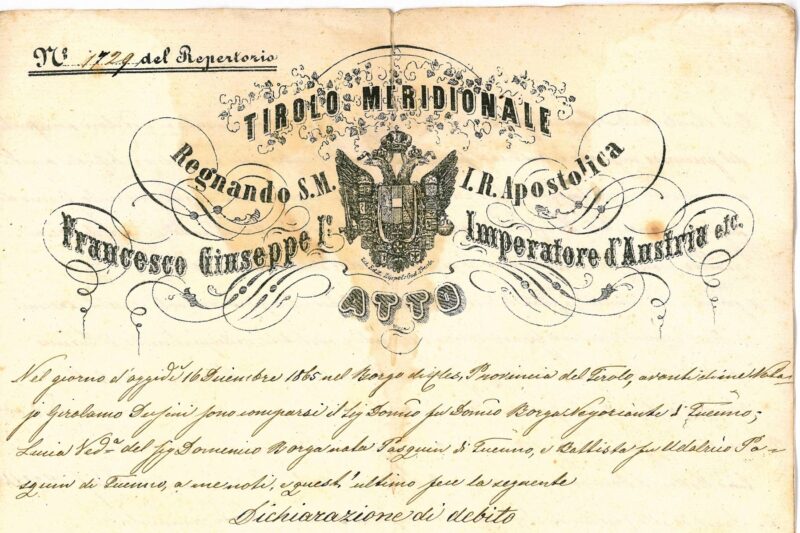 Nº 1729 del Repertorio
TIROLO MERIDIONALE
Regnando S.M. I.R. Apostolica
Francesco Giuseppe Iº Imperatore d'Austria etc.
ATTO
Nel giorno d'oggidì 16 Dicembre 1865 nel Borgo di Cles, Provincia del Tirolo, avanti di me Nota-
jo Girolamo sono comparsi il Sig Domco fu Domco Borga Negoziante di Tuenno;
Lucia Veda del Sig Domenico Borga nata Pasquin di Tuenno, e Battista fu Udalrico Pa-
squin di Tuenno, a me noti, e quest'ultimo fece la seguente
Dichiarazione di debito